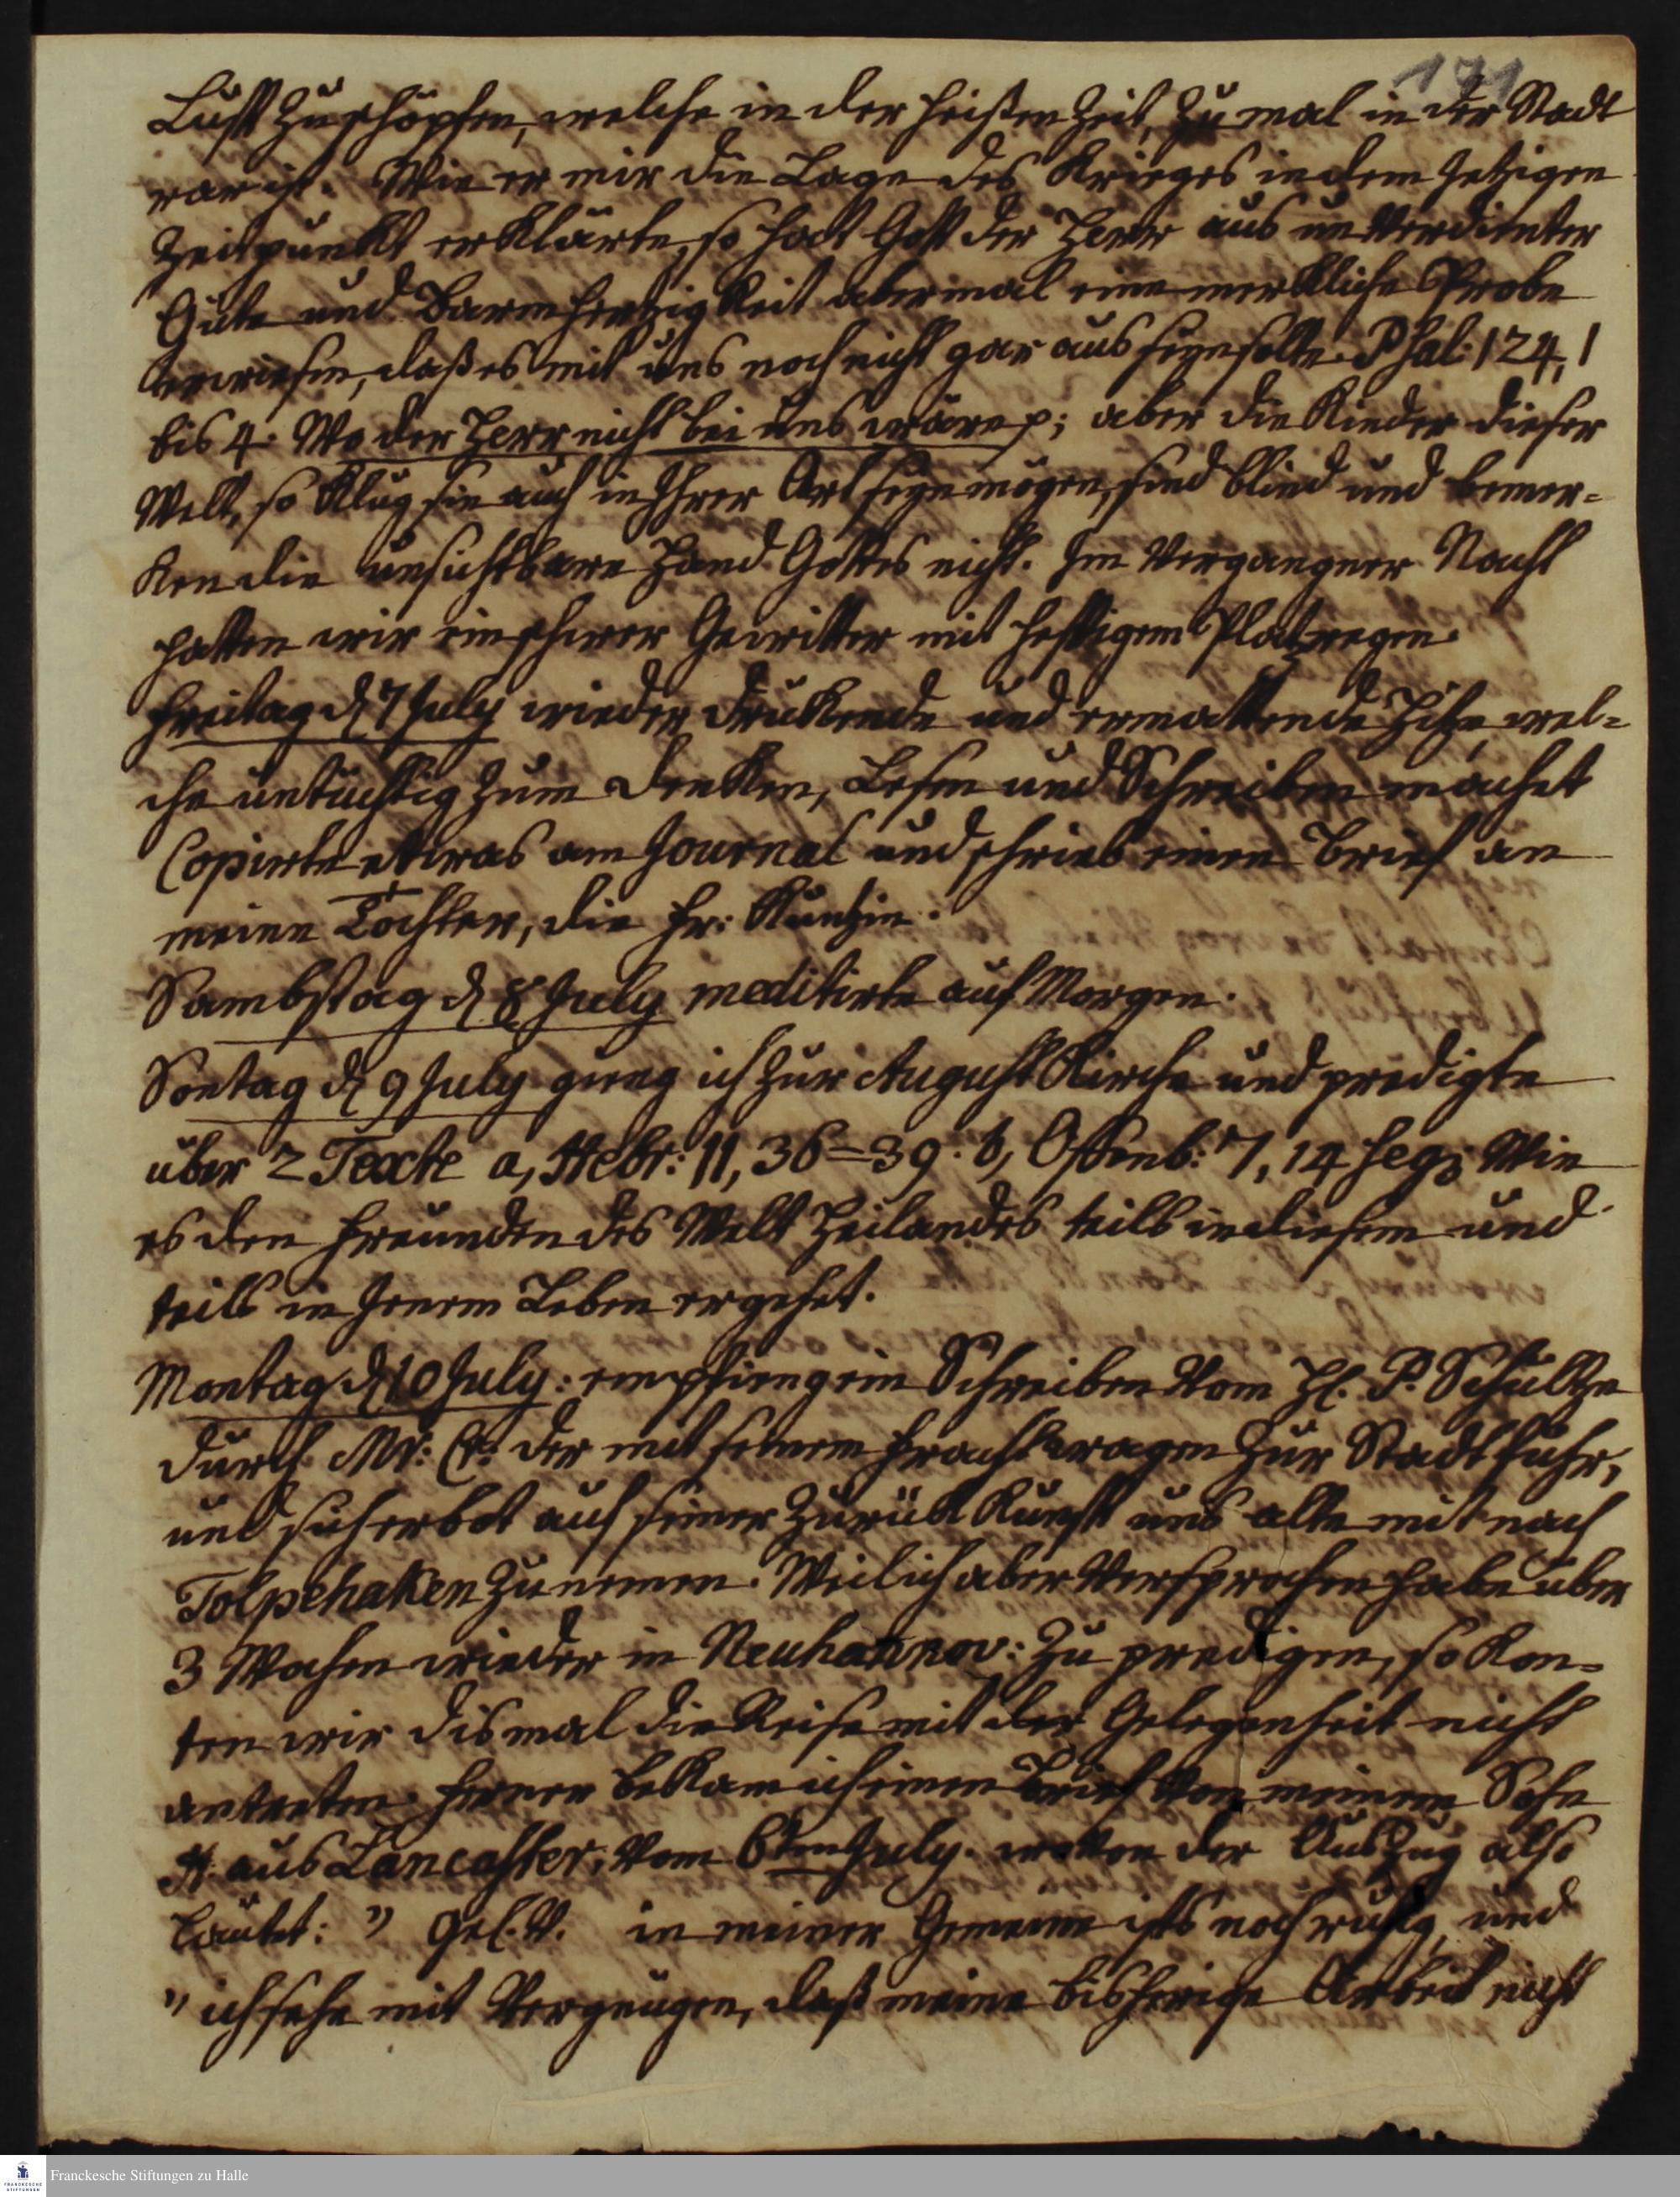 171
Luft zu schöpfen, welche in der heißen Zeit, zumal in der Stadt
rar ist. Wie er mir die Lage des Krieges in dem jetzigen
Zeitpunkt erklärte, so hatt Gott der Herr aus unverdienter
Güte und Barmhertzigkeit abermal eine merkliche Probe
erwiesen, daß es mit uns noch nicht gar aus seyn solte. Psal: 124, 1
bis 4. Wo der Herr nicht bei uns wäre p; aber die Kinder dieser
Welt, so klug sie auch in Ihrer Art seyn mögen, sind blind und bemer=
ken die unsichtbare Hand Gottes nicht. In vergangner Nacht
hatten wir ein schwer Gewitter mit heftigem Platzregen.
Freitag d 7 July wieder drückende und ermattende Hitze, wel=
che untüchtig zum denken, Lesen und Schreiben machet
Copirte etwas am Journal und schrieb einen Brief an
meine Tochter, die Fr: Kuntzin.
Sambstag d 8 July meditirte auf Morgen.
Sontag d 9 July gieng ich zur August Kirche und predigte
über 2 Texte a, Hebr: 11, 36=39. b, Offenb: 7, 14 seqq Wie
es den Freunden des Welt Heilandes teils in diesem und
teils in Jenem Leben ergehet.
Montag d 10 July: empfieng ein Schreiben vom H. P. Schultze
durch Mr: Er. der mit seinem Frachtwagen zur Stadt fuhr,
und sich erbot auf seiner Zurückkunft uns alte mit nach
Tolpehaken zu nemen. Weil ich aber versprochen habe über
3 Wochen wieder in Neuhannov: zu predigen, so kon=
ten wir dismal die Reise mit der Gelegenheit nicht
antreten. Ferner bekam ich einen Brief von meinem Sohn
H. aus Lancaster, vom 6ten July. wovon der Auszug also
lautet: " Gel. V. in meiner Gemeine ists noch ruhig, und
" ich sehe mit Vergnügen, daß meine bisherige Arbeit nicht
Franckesche Stiftungen zu Halle
FRANCKESCHE STIFTUNGEN